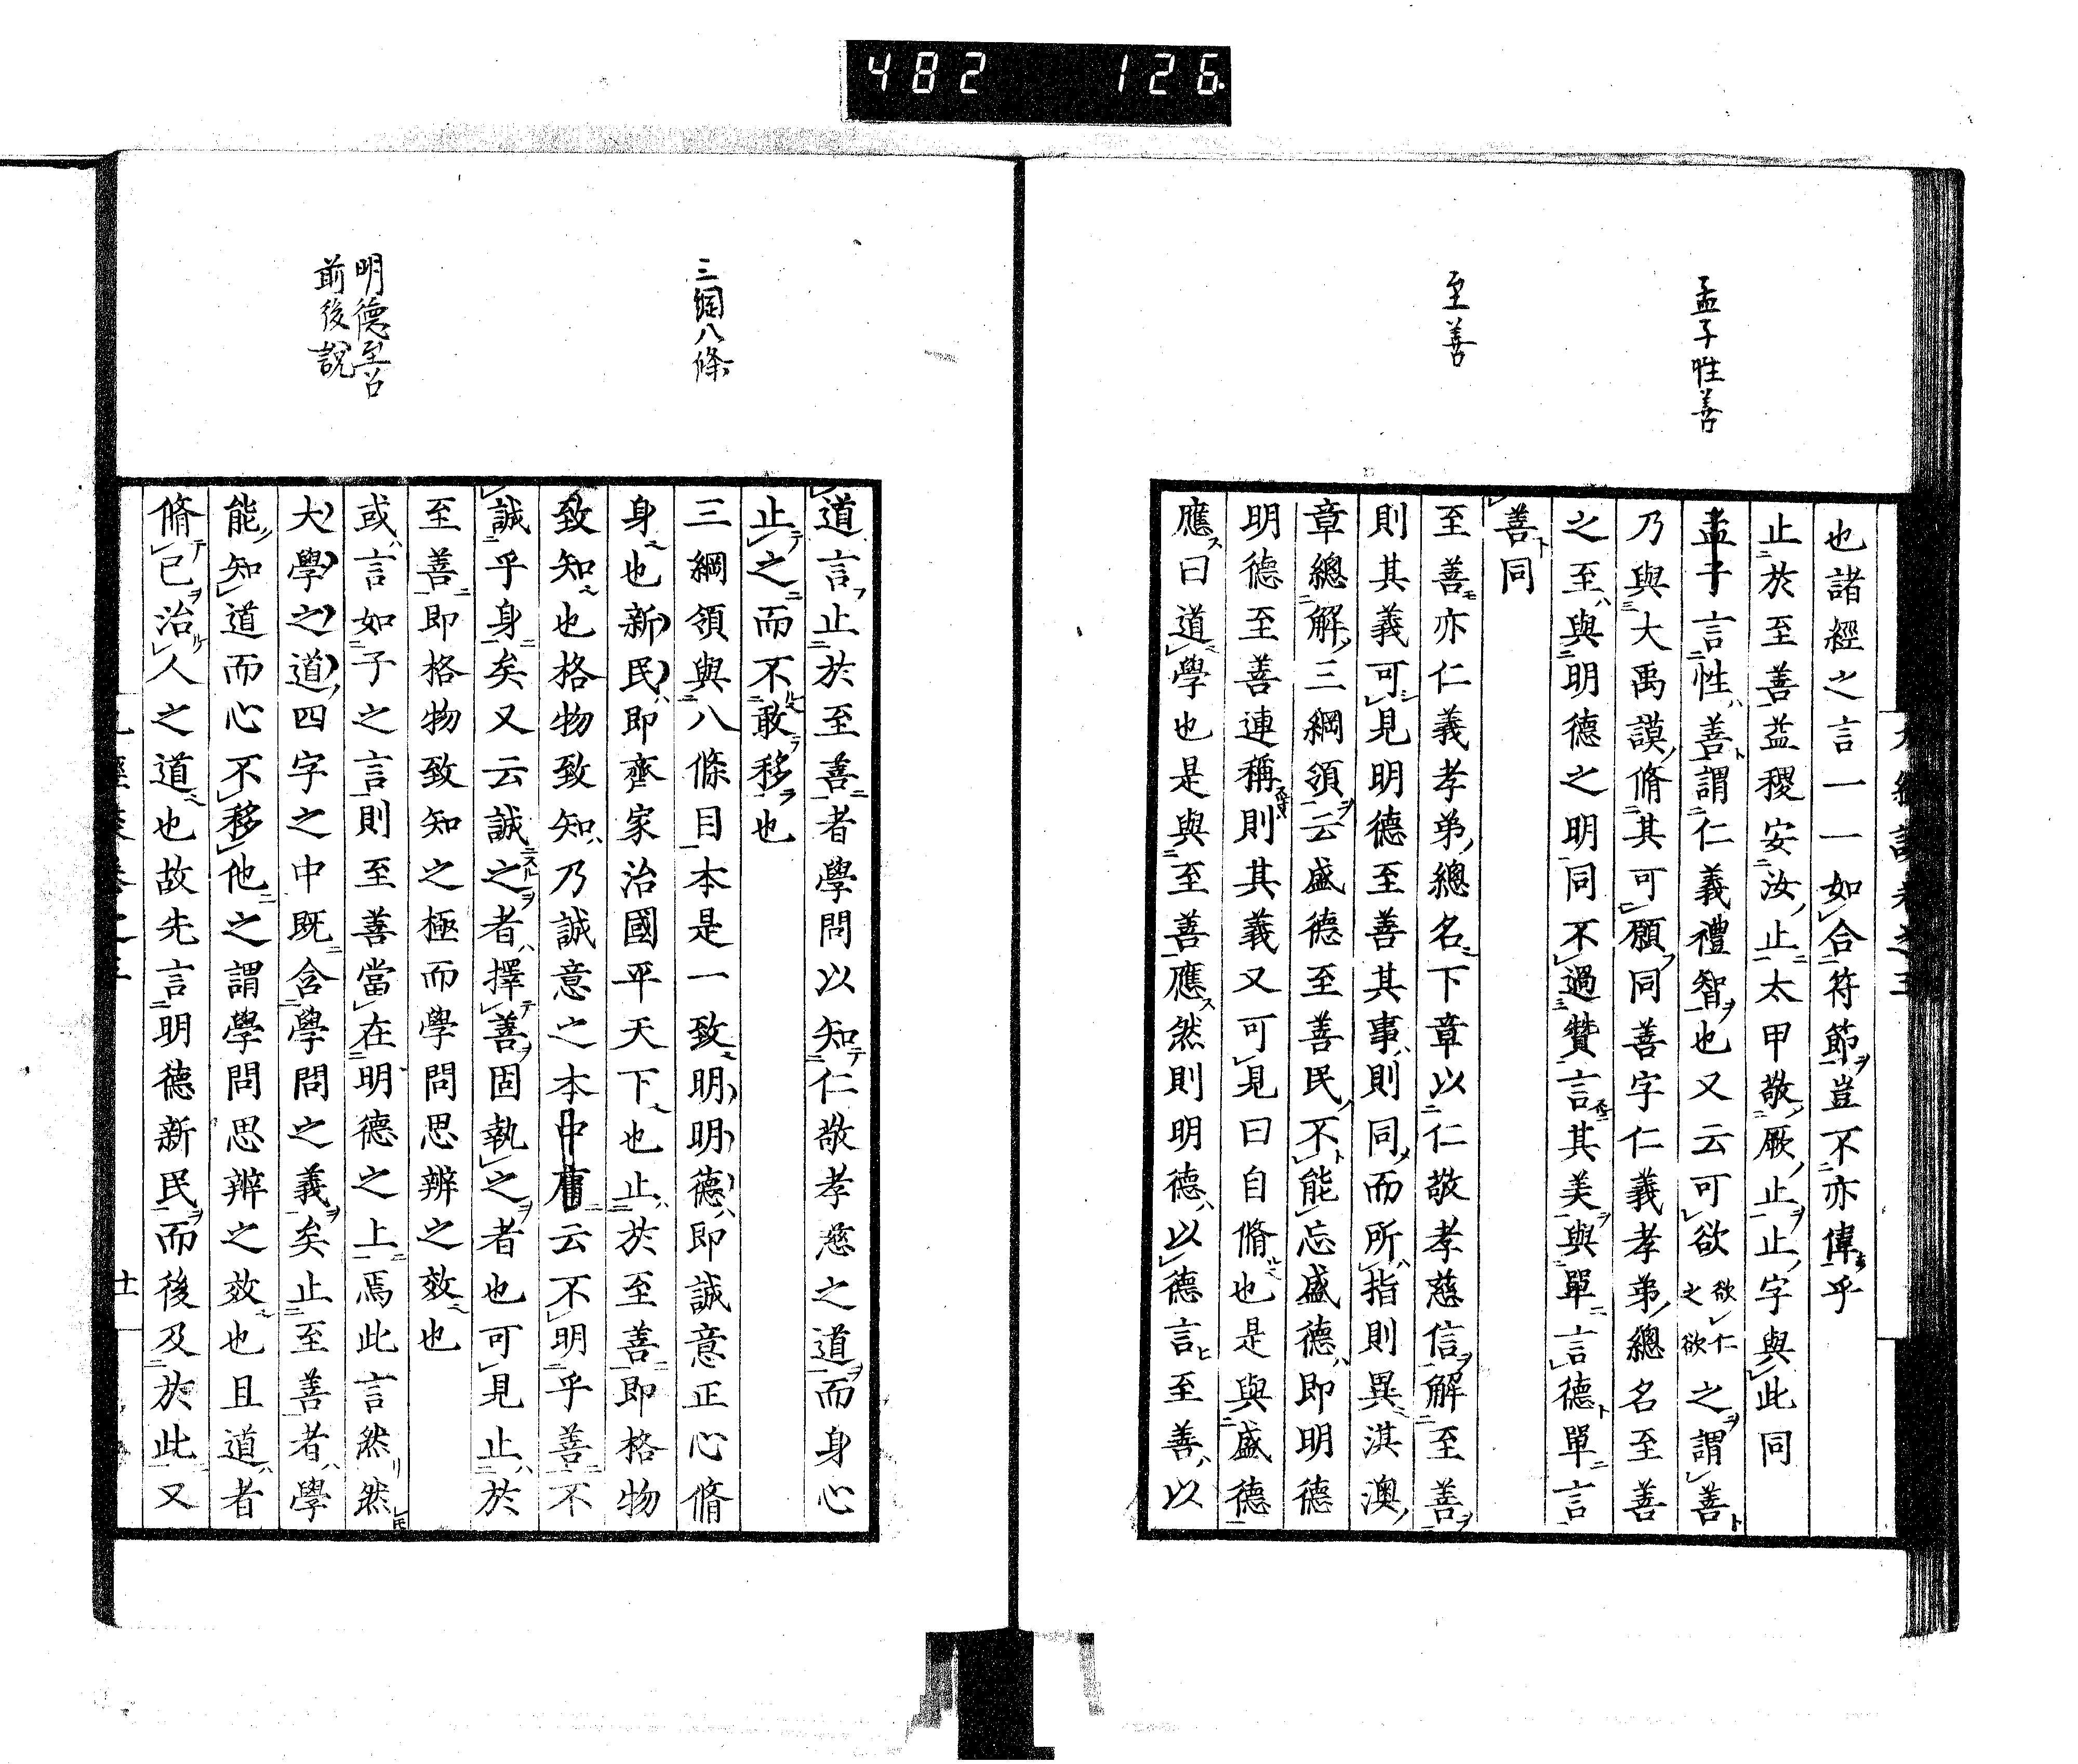 482 126
孟子性善
至善
也諸經之言一一如合符節豈不亦偉乎
止於至善益稷安汝止太甲敬厥止止字與此同
孟子言性善謂仁義禮智也又云可欲欲仁之欲之謂善
乃與大禹謨脩其可願同善字仁義孝弟總名至善
之至與明德之明同不過贊言其美與單言德單言
善同
至善亦仁義孝弟總名下章以仁敬孝慈信解至善
則其義可見明德至善其事則同而所指則異淇澳
章總解三綱領云盛德至善民不能忘盛德即明德
明德至善連稱則其義又可見曰自脩也是與盛德
應曰道學也是與至善應然則明德以德言至善以
三綱八條
明德至善
前後說
道言止於至善者學問以知仁敬孝慈之道而身心
止之而不敢移也
三綱領與八條目本是一致明明德即誠意正心脩
身也新民即齊家治國平天下也止於至善即格物
致知也格物致知乃誠意之本中庸云不明乎善不
誠乎身矣又云誠之者擇善固執之者也可見止於
至善即格物致知之極而學問思辨之效也
或言如子之言則至善當在明德之上焉此言然然
大學之道四字之中既含學問之義矣止至善者學
能知道而心不移他之謂學問思辨之效也且道者
脩己治人之道也故先言明德新民而後及於此又